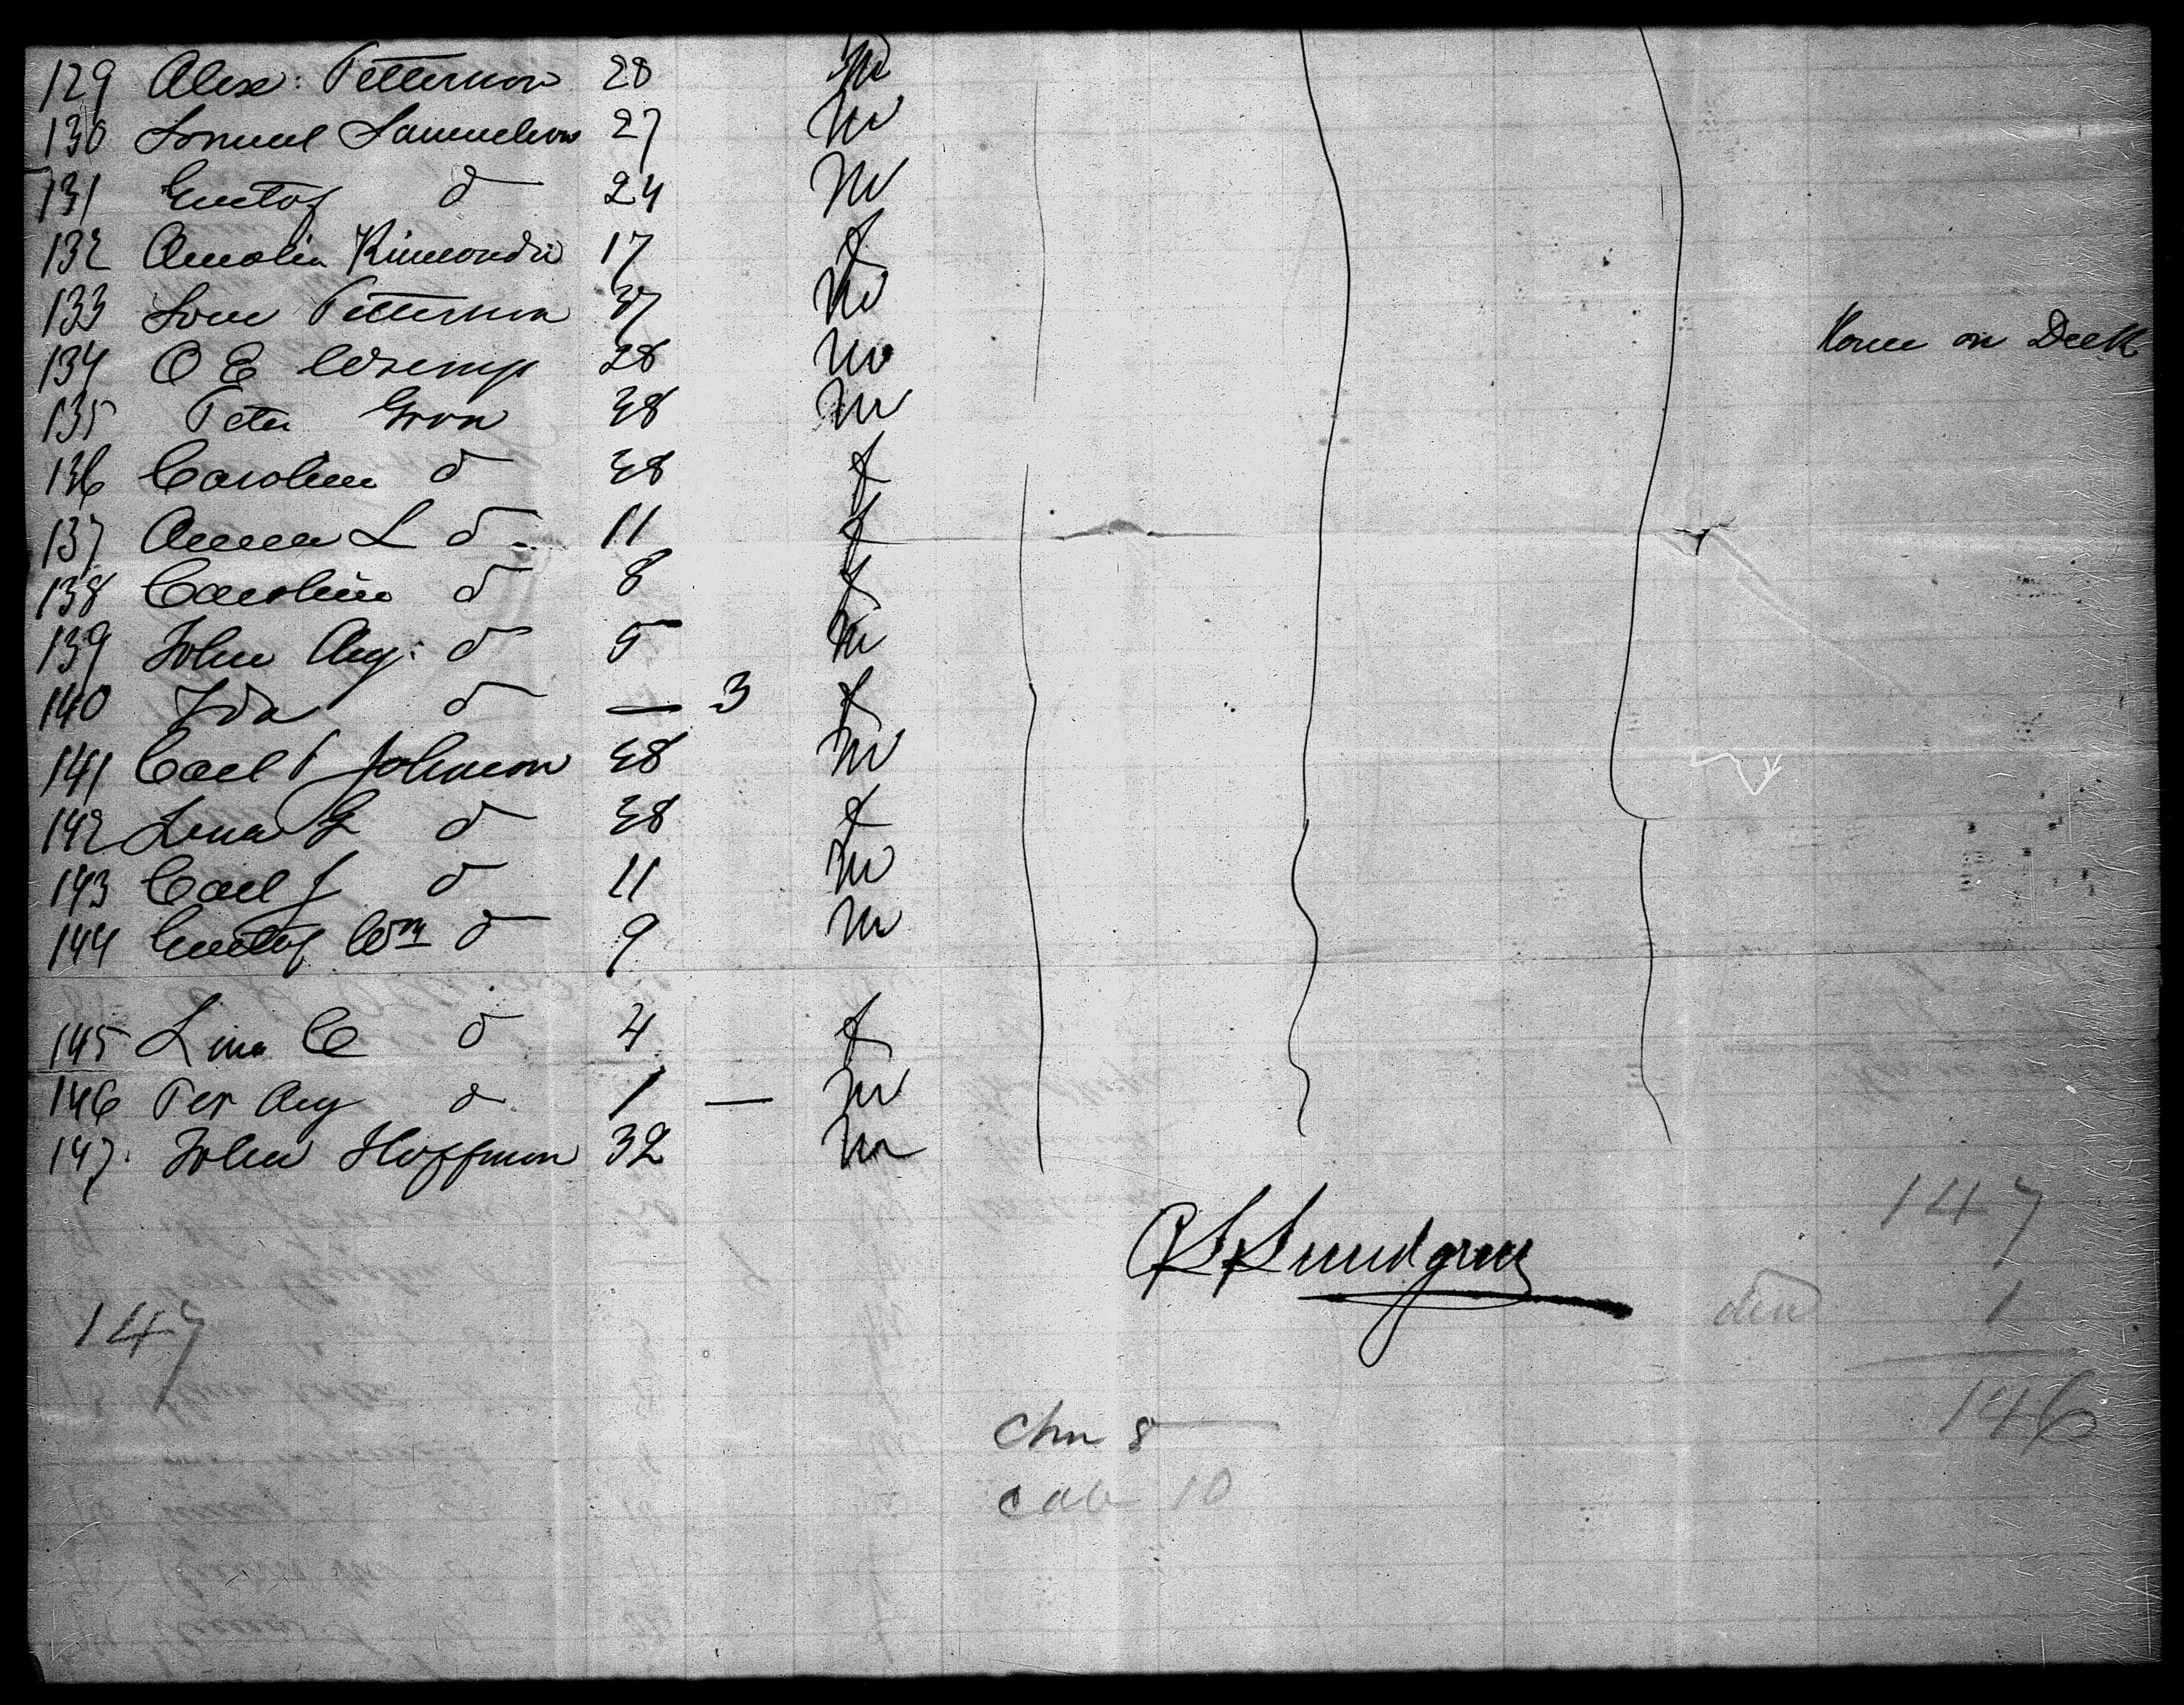 129 Alex: Petterson 28 m
130 Samuel Samuelson 27 m
131 Gustof d 24 m
132 Amalia 17 f
133 Petterson 37 m
134 O E 28 m
135 Peter Gron 38 m
136 Carolina d 38 f
137 Anna L d 11 f
138 Carolina d 8 f
139 John Aug: d 5 m
140 Ida d — 3 f
141 Carl P Johnson 38 m
142 Lena G d 38 f
143 Carl J d 11 m
144 Gustof Wm d 9 m
145 Lina C d 4 f
146 Per Aug d 1 — m
147. John Hoffman 32 m
on Deck
Lundgren
147
147
1
146
Chn 8
cab 10